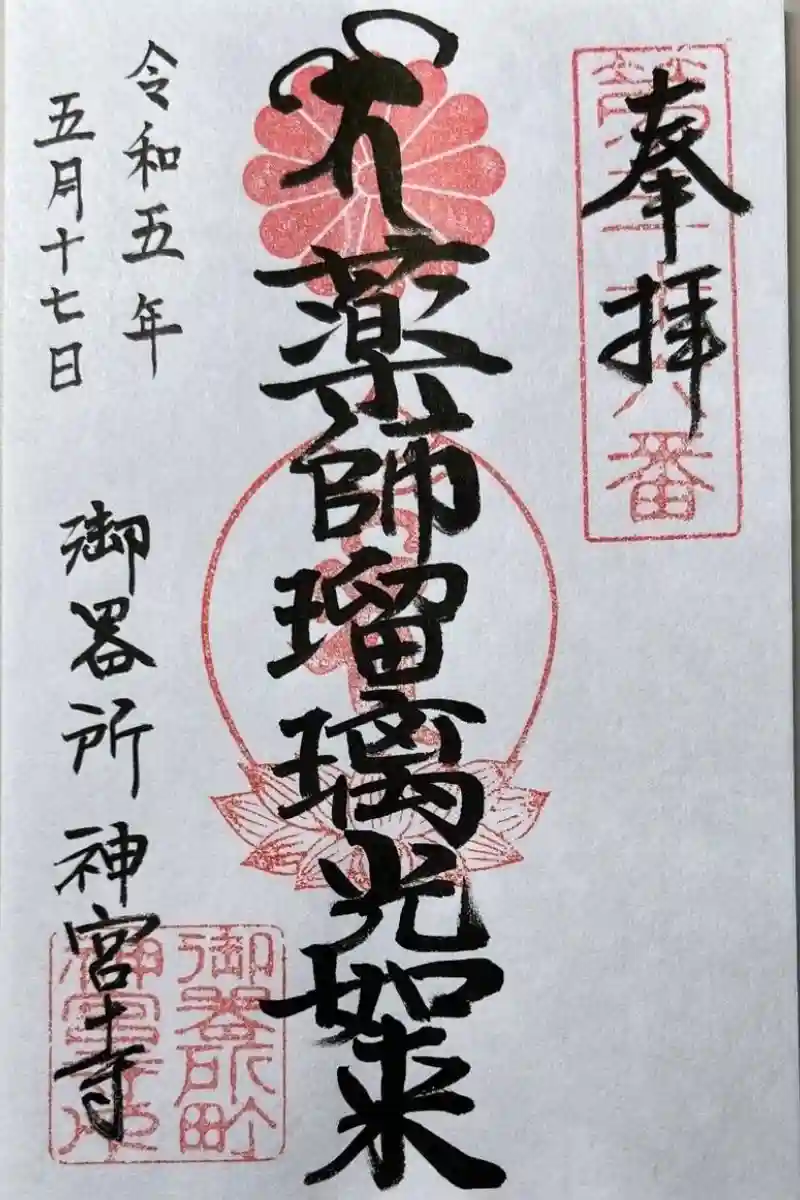 奉拝
薬師瑠璃光如来
令和五年
五月十七日
御器所神宮寺
番
御器所町
神宮寺